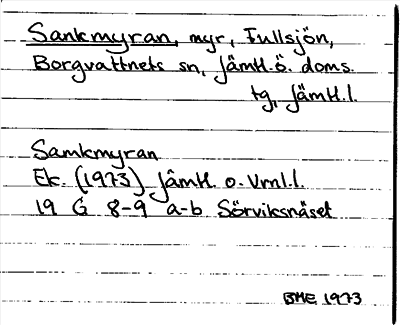 Sankmyran, myr, Fullsjön,
Borgvattnets sn, Jämtl. ö. doms.
tg, Jämtl. l.
Sankmyran
Ek. (1973) Jämtl. o. Vrnl. l.
19 G 8-9 a-b Sörviksnäset
BME 1973